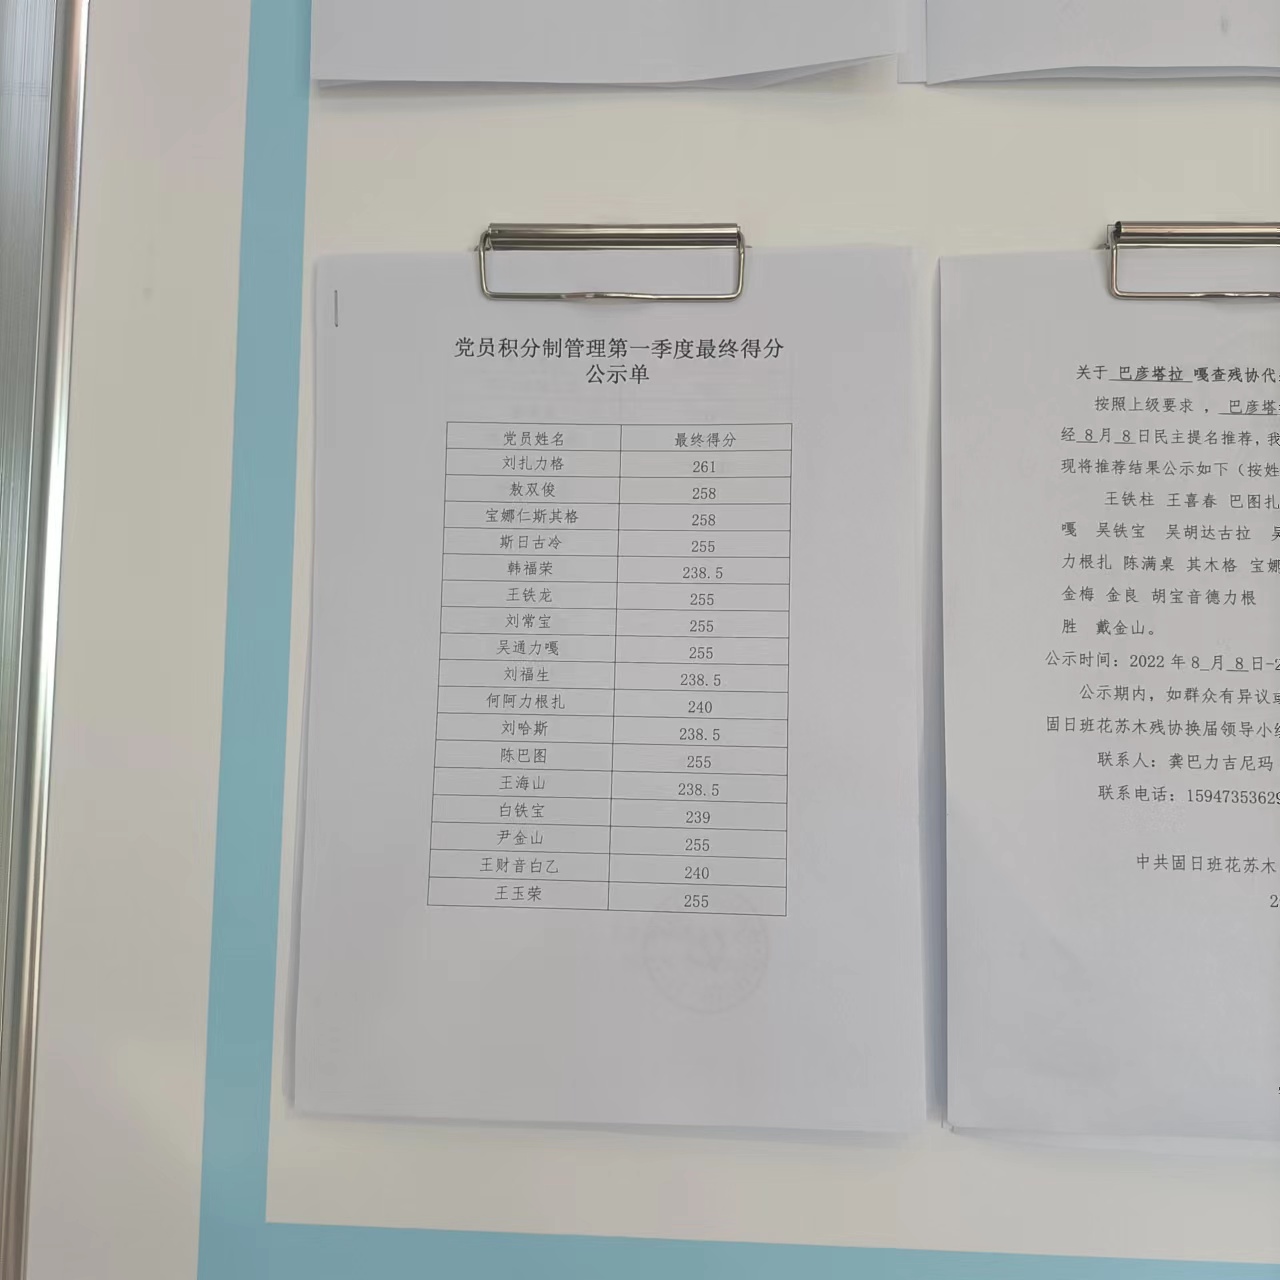 党员积分制管理第一季度最终得分
公示单
党员姓名 最终得分
刘扎力格 261
敖双俊 258
宝娜仁斯其格 258
斯日古冷 255
韩福荣 238.5
王铁龙 255
刘常宝 255
吴通力嘎 255
刘福生 238.5
何阿力根扎 240
刘哈斯 238.5
陈巴图 255
王海山 238.5
白铁宝 239
尹金山 255
王财音白乙 240
王玉荣 255
关于 巴彦塔拉 嘎查残协代
按照上级要求 ， 巴彦塔
经 8 月 8 日民主提名推荐，我
现将推荐结果公示如下（按姓
王铁柱 王喜春 巴图扎
嘎 吴铁宝 吴胡达古拉 吴
力根扎 陈满桌 其木格 宝娜
金梅 金良 胡宝音德力根
胜 戴金山。
公示时间：2022 年 8 月 8 日-2
公示期内，如群众有异议或
固日班花苏木残协换届领导小组
联系人：龚巴力吉尼玛
联系电话：15947353629
中共固日班花苏木
2